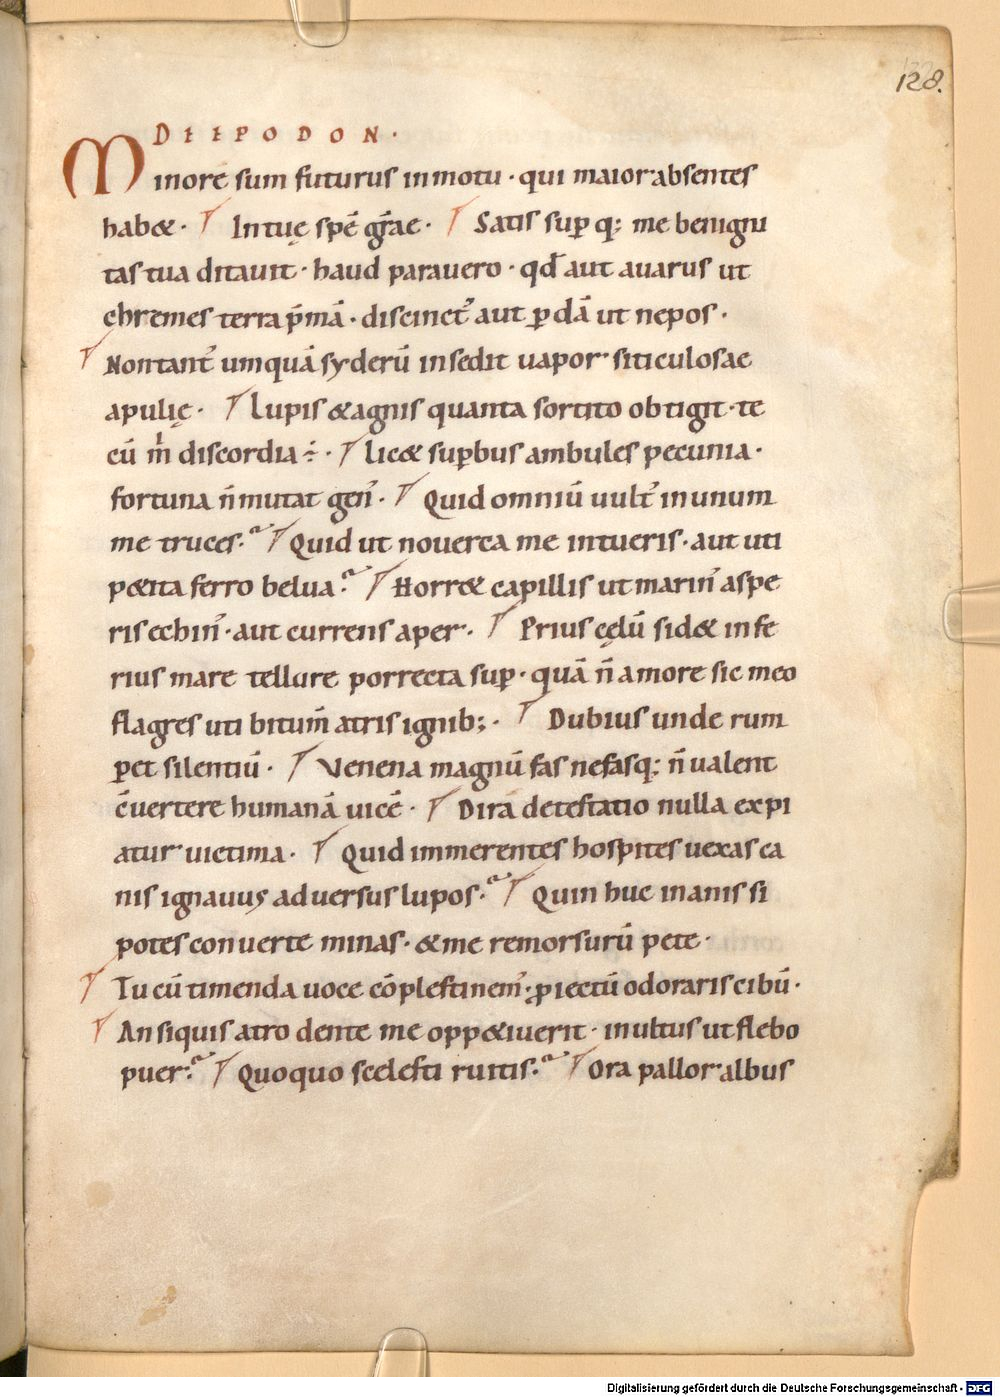 128.
D E E P O D O N ·
Minorē sum futurus in motu · qui maior absentes
hab& · In tuę spē gr̄ae · Satis sup̄ q; me benigni
tas tua ditauit · haud parauero · qd̄ aut auarus ut
chremes terra p̄mā · discinct᾽ aut p̱dā ut nepos ·
Non tant᾽ umquā syderū insedit uapor siticulosae
apulię · Lupis & agnis quanta sortito obtigit · te
cū m̄ discordia ÷ · Lic& sup̄bus ambules pecunia ·
fortuna n̄ mutat gen᾽ · Quid omniū uult᾽ in unum
me truces ? Quid ut nouerca me intueris · aut uti
p&ita ferro belua ? Horr& capillis ut marin᾽ aspe
ris echin᾽ · aut currens aper · Prius cęlū sid& infe
rius mare tellure porrecta sup̄ · quā n̄ amore sic meo
flagres uti bitum̄ atris ignib; · Dubius unde rum
p̱et silentiū · Venena magnū fas nefasq; n̄ ualent
c̄uertere humanā uicē · Dira detestatio nulla expi
atur uictima · Quid immerentes hospites uexas ca
nis ignauus aduersus lupos ? Quin huc inanis si
potes conuerte minas · & me remorsurū pete ·
Tu cū timenda uoce cōplestinem᾽ · ꝓiectū odoraris cibū ·
An siquis atro dente me opp&iuerit · inultus ut flebo
puer ? Quo quo scelesti ruitis ? Ora pallor albus
Digitalisierung gefördert durch die Deutsche Forschungsgemeinschaft - DFG